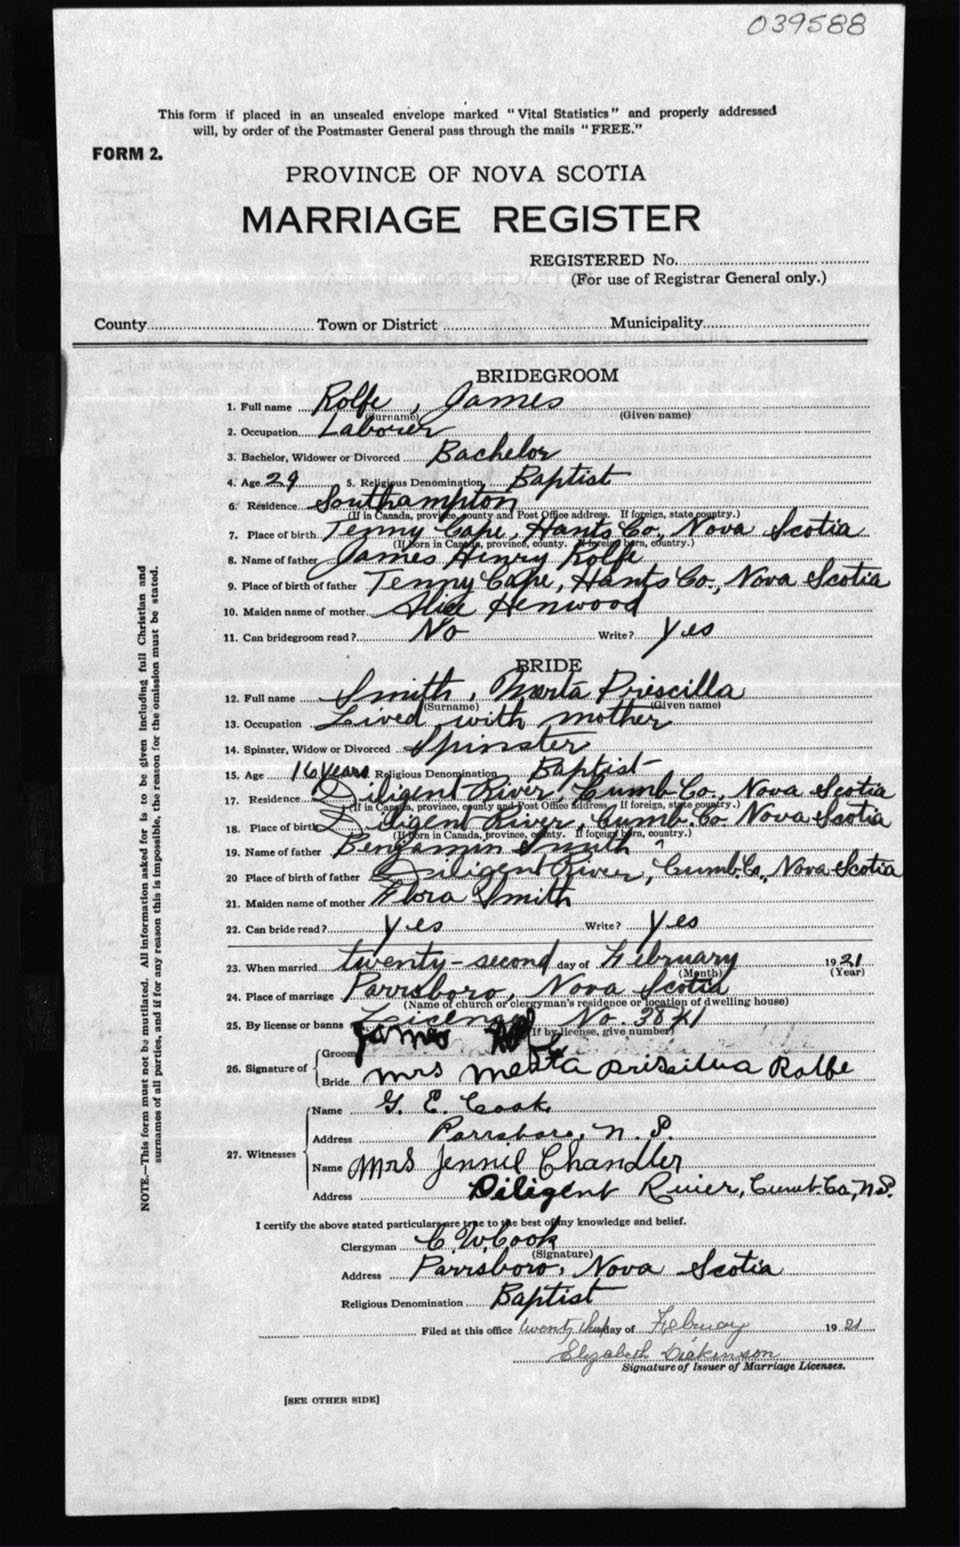 039588
This form if placed in an unsealed envelope marked "Vital Statistics" and properly addressed
will, by order of the Postmaster General pass through the mails "FREE."
FORM 2.
PROVINCE OF NOVA SCOTIA
MARRIAGE REGISTER
REGISTERED No.
(For use of Registrar General only.)
County Town or District Municipality
BRIDEGROOM
1. Full name Rolfe, James
(Surname) (Given name)
2. Occupation Laborer
3. Bachelor, Widower or Divorced Bachelor
4. Age 29 5. Religious Denomination Baptist
6. Residence Southampton
(If in Canada, province, county and Post Office address. If foreign, state country.)
7. Place of birth Tenny Cape, Hants Co., Nova Scotia
(If born in Canada, province, county. If foreign born, country.)
8. Name of father James Henry Rolfe
9. Place of birth of father Tenny Cape, Hants Co., Nova Scotia
10. Maiden name of mother Alice Henwood
11. Can bridegroom read? No Write? Yes
BRIDE
12. Full name Smith, Priscilla
(Surname) (Given name)
13. Occupation Lived with mother
14. Spinster, Widow or Divorced Spinster
15. Age 16 years Religious Denomination Baptist
17. Residence Diligent River, Cumb. Co., Nova Scotia
(If in Canada, province, county and Post Office Address. If foreign, state country.)
18. Place of birth Diligent River, Cumb. Co. Nova Scotia
(If born in Canada, province, county. If foreign born, country.)
19. Name of father Benjamin Smith
20 Place of birth of father Diligent River, Cumb. Co., Nova Scotia
21. Maiden name of mother Flora Smith
22. Can bride read? Yes Write? Yes
23. When married twenty-second day of February 1921
(Month) (Year)
24. Place of marriage Parrsboro, Nova Scotia
(Name of church or clergyman's residence or location of dwelling house)
25. By license or banns License No. 3841
(If by license, give number)
26. Signature of
Groom James
Bride Mrs Priscilla Rolfe
27. Witnesses
Name G. E. Cook
Address Parrsboro, N. S.
Name Mrs Chandler
Address Diligent River, Cumb. Co, N.S.
I certify the above stated particulars are true to the best of my knowledge and belief.
Clergyman C. W. Cook
(Signature)
Address Parrsboro, Nova Scotia
Religious Denomination Baptist
Filed at this office twenty day of February 1921
Elizabeth Dickinson
Signature of Issuer of Marriage Licenses.
[SEE OTHER SIDE]
NOTE.—This form must not be mutilated. All information asked for is to be given including full Christian and
surnames of all parties, and if for any reason this is impossible, the reason for the omission must be stated.